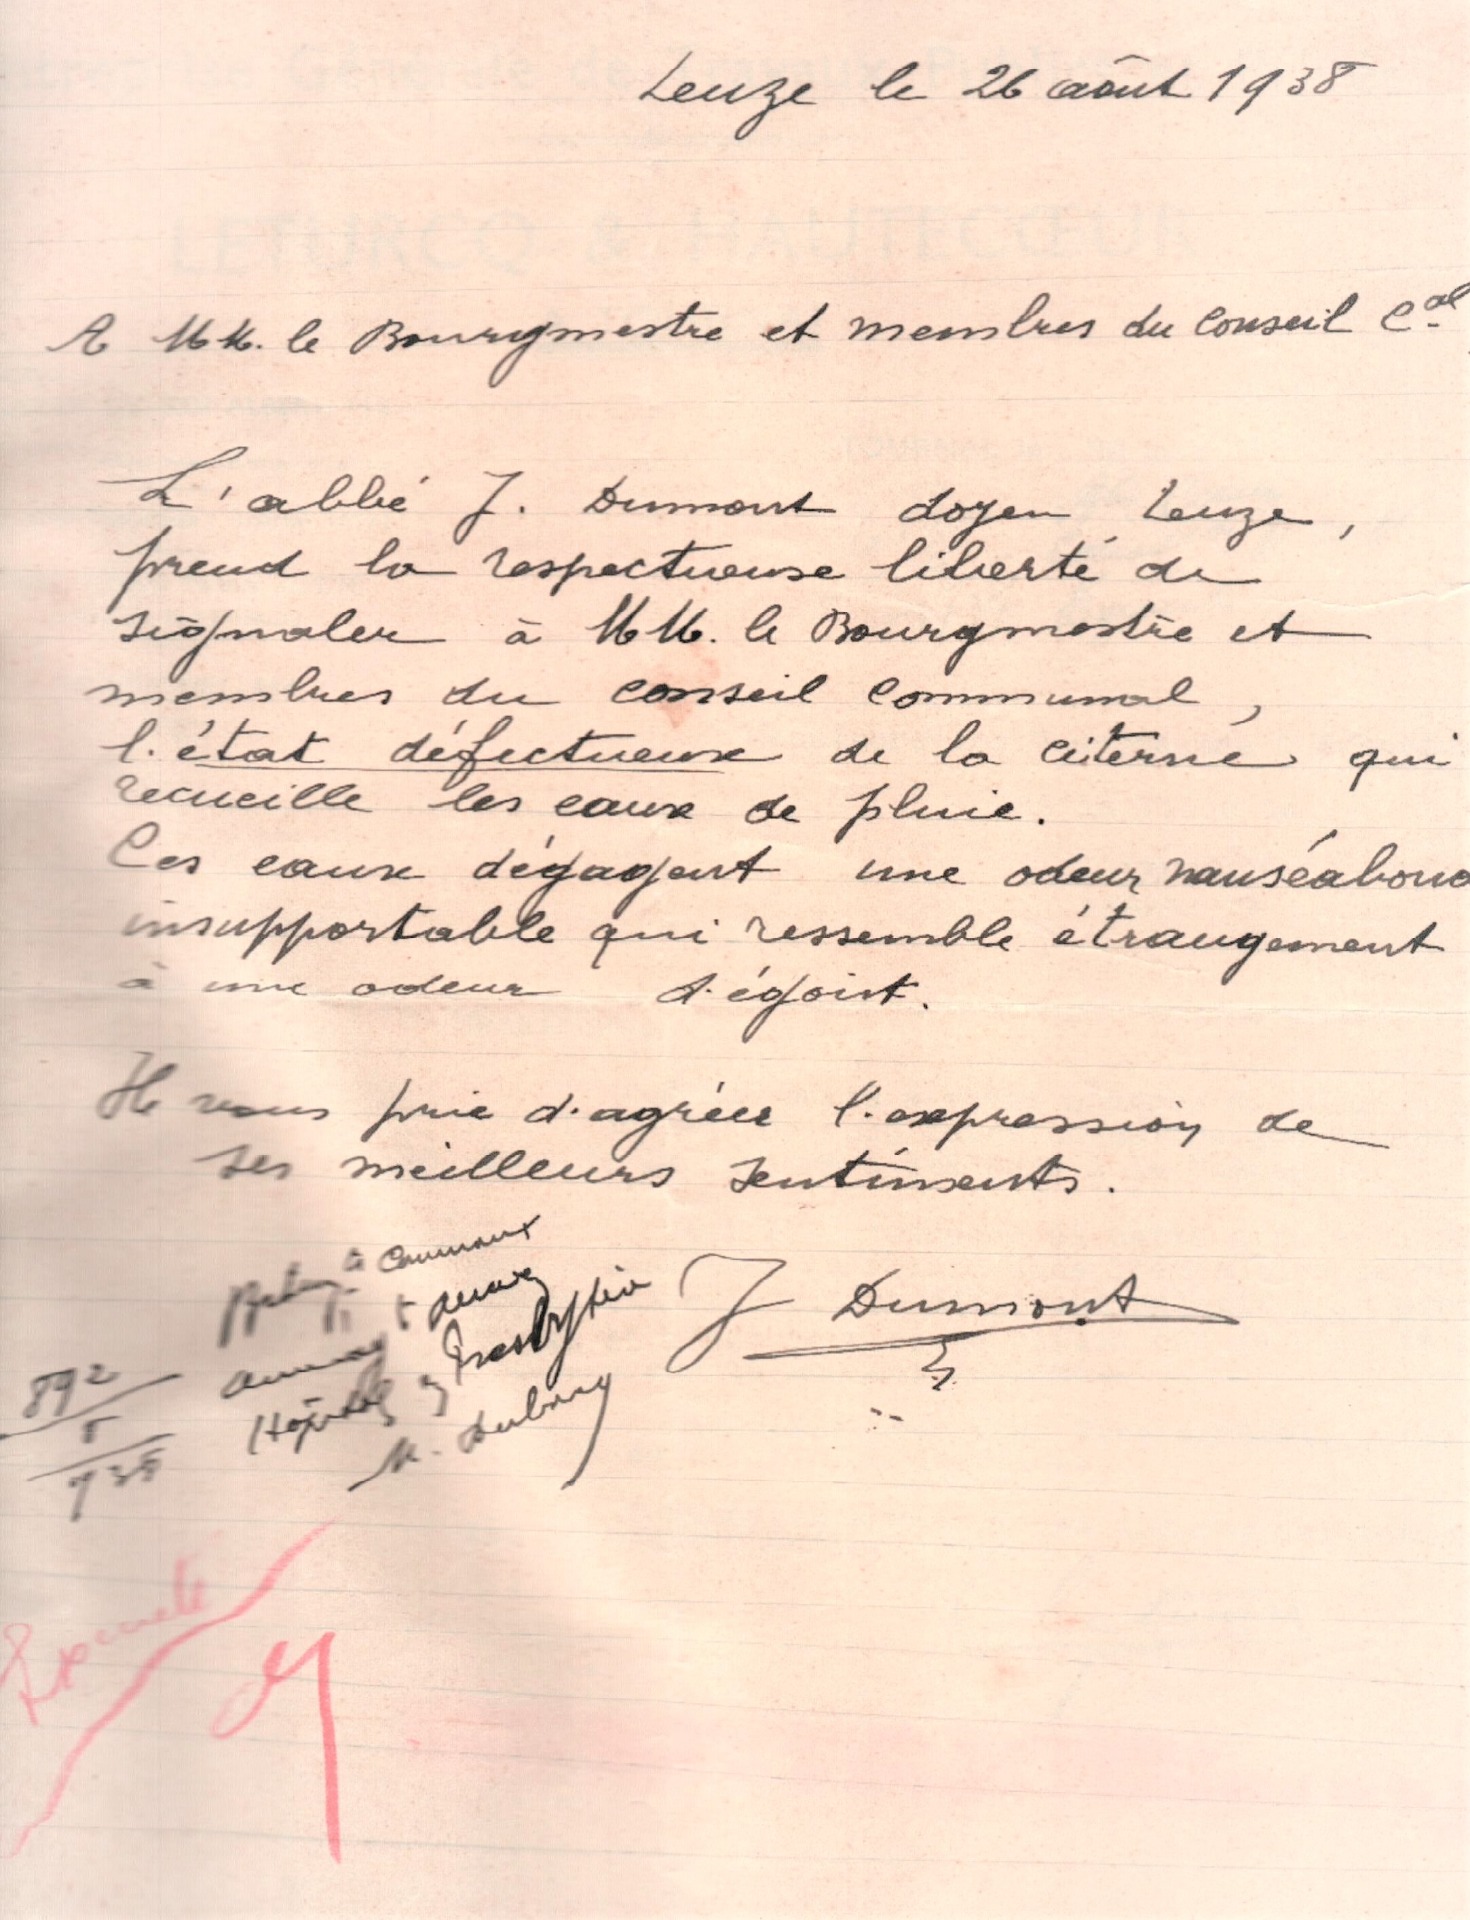 Leuze le 26 août 1938
LETURCQ & HAUTECŒUR
A MM. le Bourgmestre et membres du Conseil Cal
L'abbé J. Dumont doyen Leuze,
prend la respectueuse liberté de
signaler à MM. le Bourgmestre et
membres du conseil communal,
l'état défectueux de la citerne qui
recueille les eaux de pluie.
Ces eaux dégagent une odeur nauséabond
insupportable qui ressemble étrangement
à une odeur d'égoint.
Il vous prie d'agréer l'expression de
ses meilleurs sentiments.
Communx
J Dumont
Presbytère
892
8
938
M.